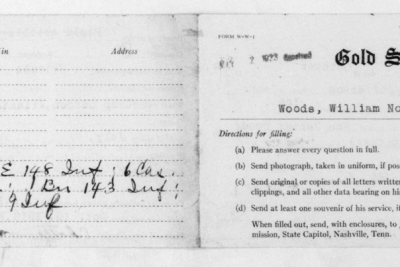 in Address
E 148 Inf; 6 Cas.
1 Bn 143 Inf;
9 Inf
FORM N-N-1
2 1923
Gold S
Woods, William No
Directions for filling:
(a) Please answer every question in full.
(b) Send photograph, taken in uniform, if pos
(c) Send original or copies of all letters written
clippings, and all other data bearing on hi
(d) Send at least one souvenir of his service, i
When filled out, send, with enclosures, to
mission, State Capitol, Nashville, Tenn.